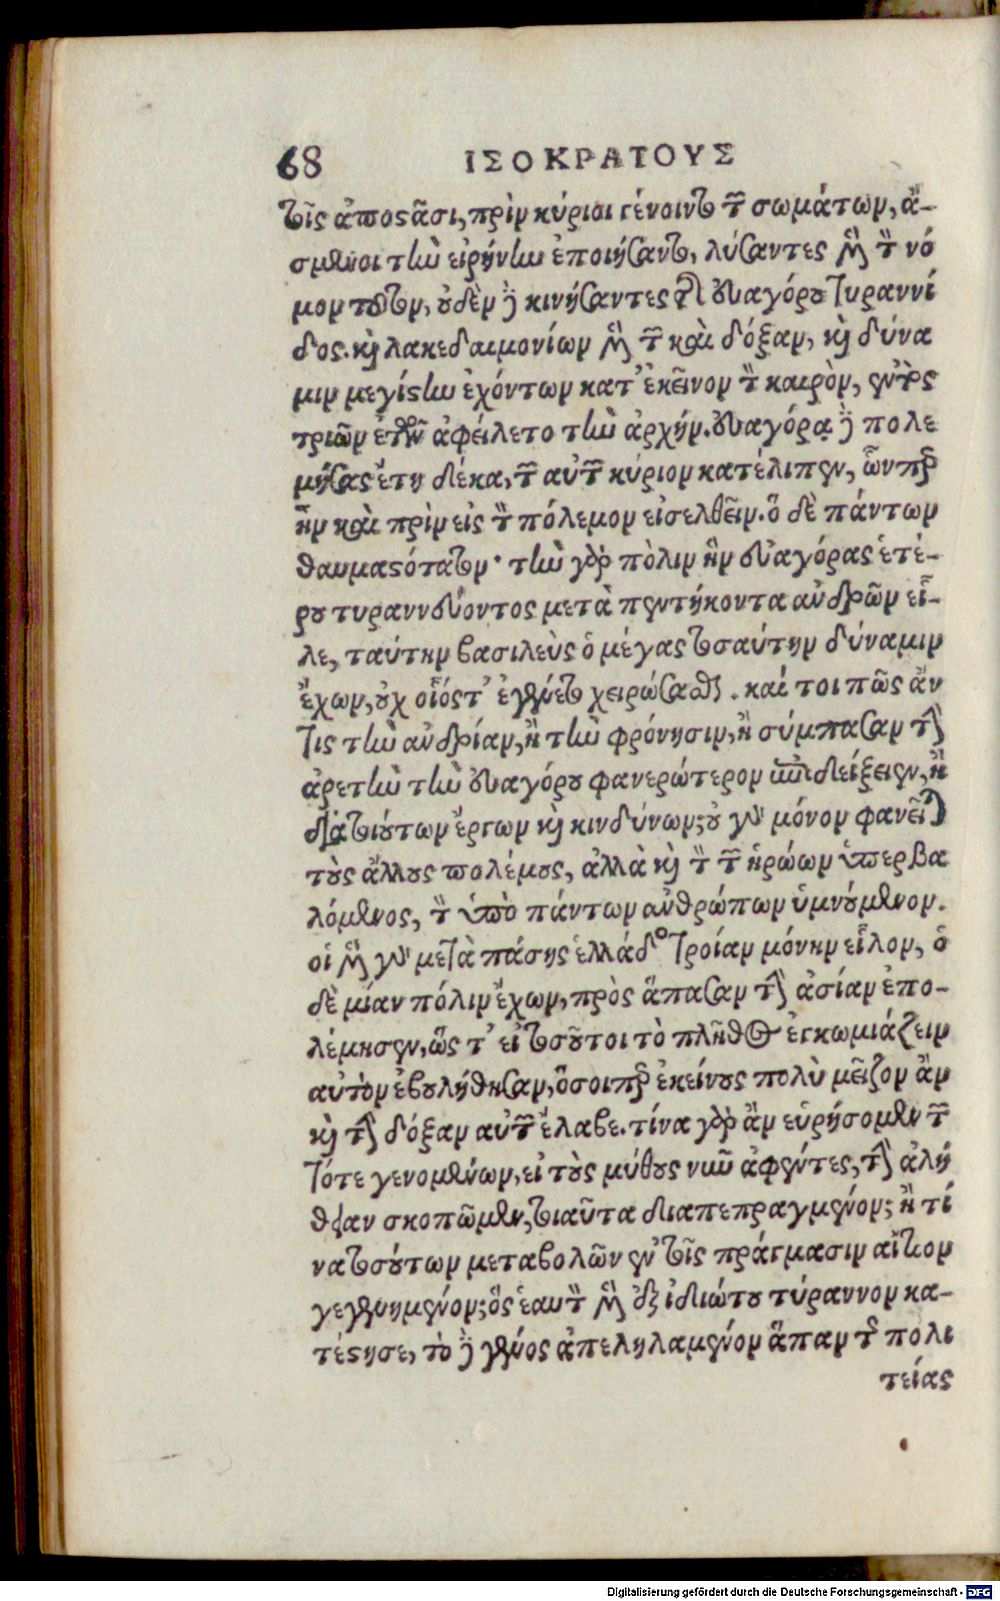 68 ΙΣΟΚΡΑΤΟΥΣ
τοῖς ἀποστᾶσι, πρὶν κύριοι γένοιντο τῶν σωμάτων, ἄ-
σμενοι τὴν εἰρήνην ἐποιήσαντο, λύσαντες μὲν τὸν νό
μον τοῦτον, οὐδὲν δὲ κινήσαντες τῆς Εὐαγόρου τυραννί
δος. καὶ λακεδαιμονίων μὲν τῶν καὶ δόξαν, καὶ δύνα
μιν μεγίστην ἐχόντων κατ' ἐκεῖνον τὸν καιρὸν, ἐντὸς
τριῶν ἐτῶν ἀφείλετο τὴν ἀρχήν. Εὐαγόρᾳ δὲ πολε
μήσας ἔτη δέκα, τῶν αὐτῶν κύριον κατέλιπεν, ὧνπερ
ἦν καὶ πρὶν εἰς τὸν πόλεμον εἰσελθεῖν. ὃ δὲ πάντων
θαυμαστότατον· τὴν γὰρ πόλιν ἣν εὐαγόρας ἑτέ-
ρου τυραννεύοντος μετὰ πεντήκοντα ἀνδρῶν εἷ-
λε, ταύτην βασιλεὺς ὁ μέγας τοσαύτην δύναμιν
ἔχων, οὐχ οἷός τ' ἐγένετο χειρώσασθαι. καί τοι πῶς ἄν
τις τὴν ἀνδρίαν, ἢ τὴν φρόνησιν, ἢ σύμπασαν τὴν
ἀρετὴν τὴν Εὐαγόρου φανερώτερον ἐπιδείξειεν, ἢ
διὰ τοιούτων ἔργων καὶ κινδύνων; οὐ γὰρ μόνον φανεῖται
τοὺς ἄλλους πολέμους, ἀλλὰ καὶ τὸν τῶν ἡρώων ὑπερβα
λόμενος, τὸν ὑπὸ πάντων ἀνθρώπων ὑμνούμενον.
οἱ μὲν γὰρ μετὰ πάσης ἑλλάδος Τροίαν μόνην εἷλον, ὁ
δὲ μίαν πόλιν ἔχων, πρὸς ἅπασαν τὴν ἀσίαν ἐπο-
λέμησεν, ὥς τ' εἰ τοσοῦτοι τὸ πλῆθος ἐγκωμιάζειν
αὐτὸν ἐβουλήθησαν, ὅσοιπερ ἐκείνους πολὺ μεῖζον ἂν
καὶ τὴν δόξαν αὐτῶν ἔλαβε. τίνα γὰρ ἂν εὑρήσομεν τῶν
τότε γενομένων, εἰ τοὺς μύθους νῦν ἀφέντες, τὴν ἀλή
θειαν σκοποῦμεν, τοιαῦτα διαπεπραγμένον; ἢ τί
να τοσούτων μεταβολῶν ἐν τοῖς πράγμασιν αἴτιον
γεγενημένον; ὃς ἑαυτὸν μὲν ἐξ ἰδιώτου τύραννον κα-
τέστησε, τὸ δὲ γένος ἀπεληλαμένον ἅπαν τῆς πολι
τείας
Digitalisierung gefördert durch die Deutsche Forschungsgemeinschaft - DFG